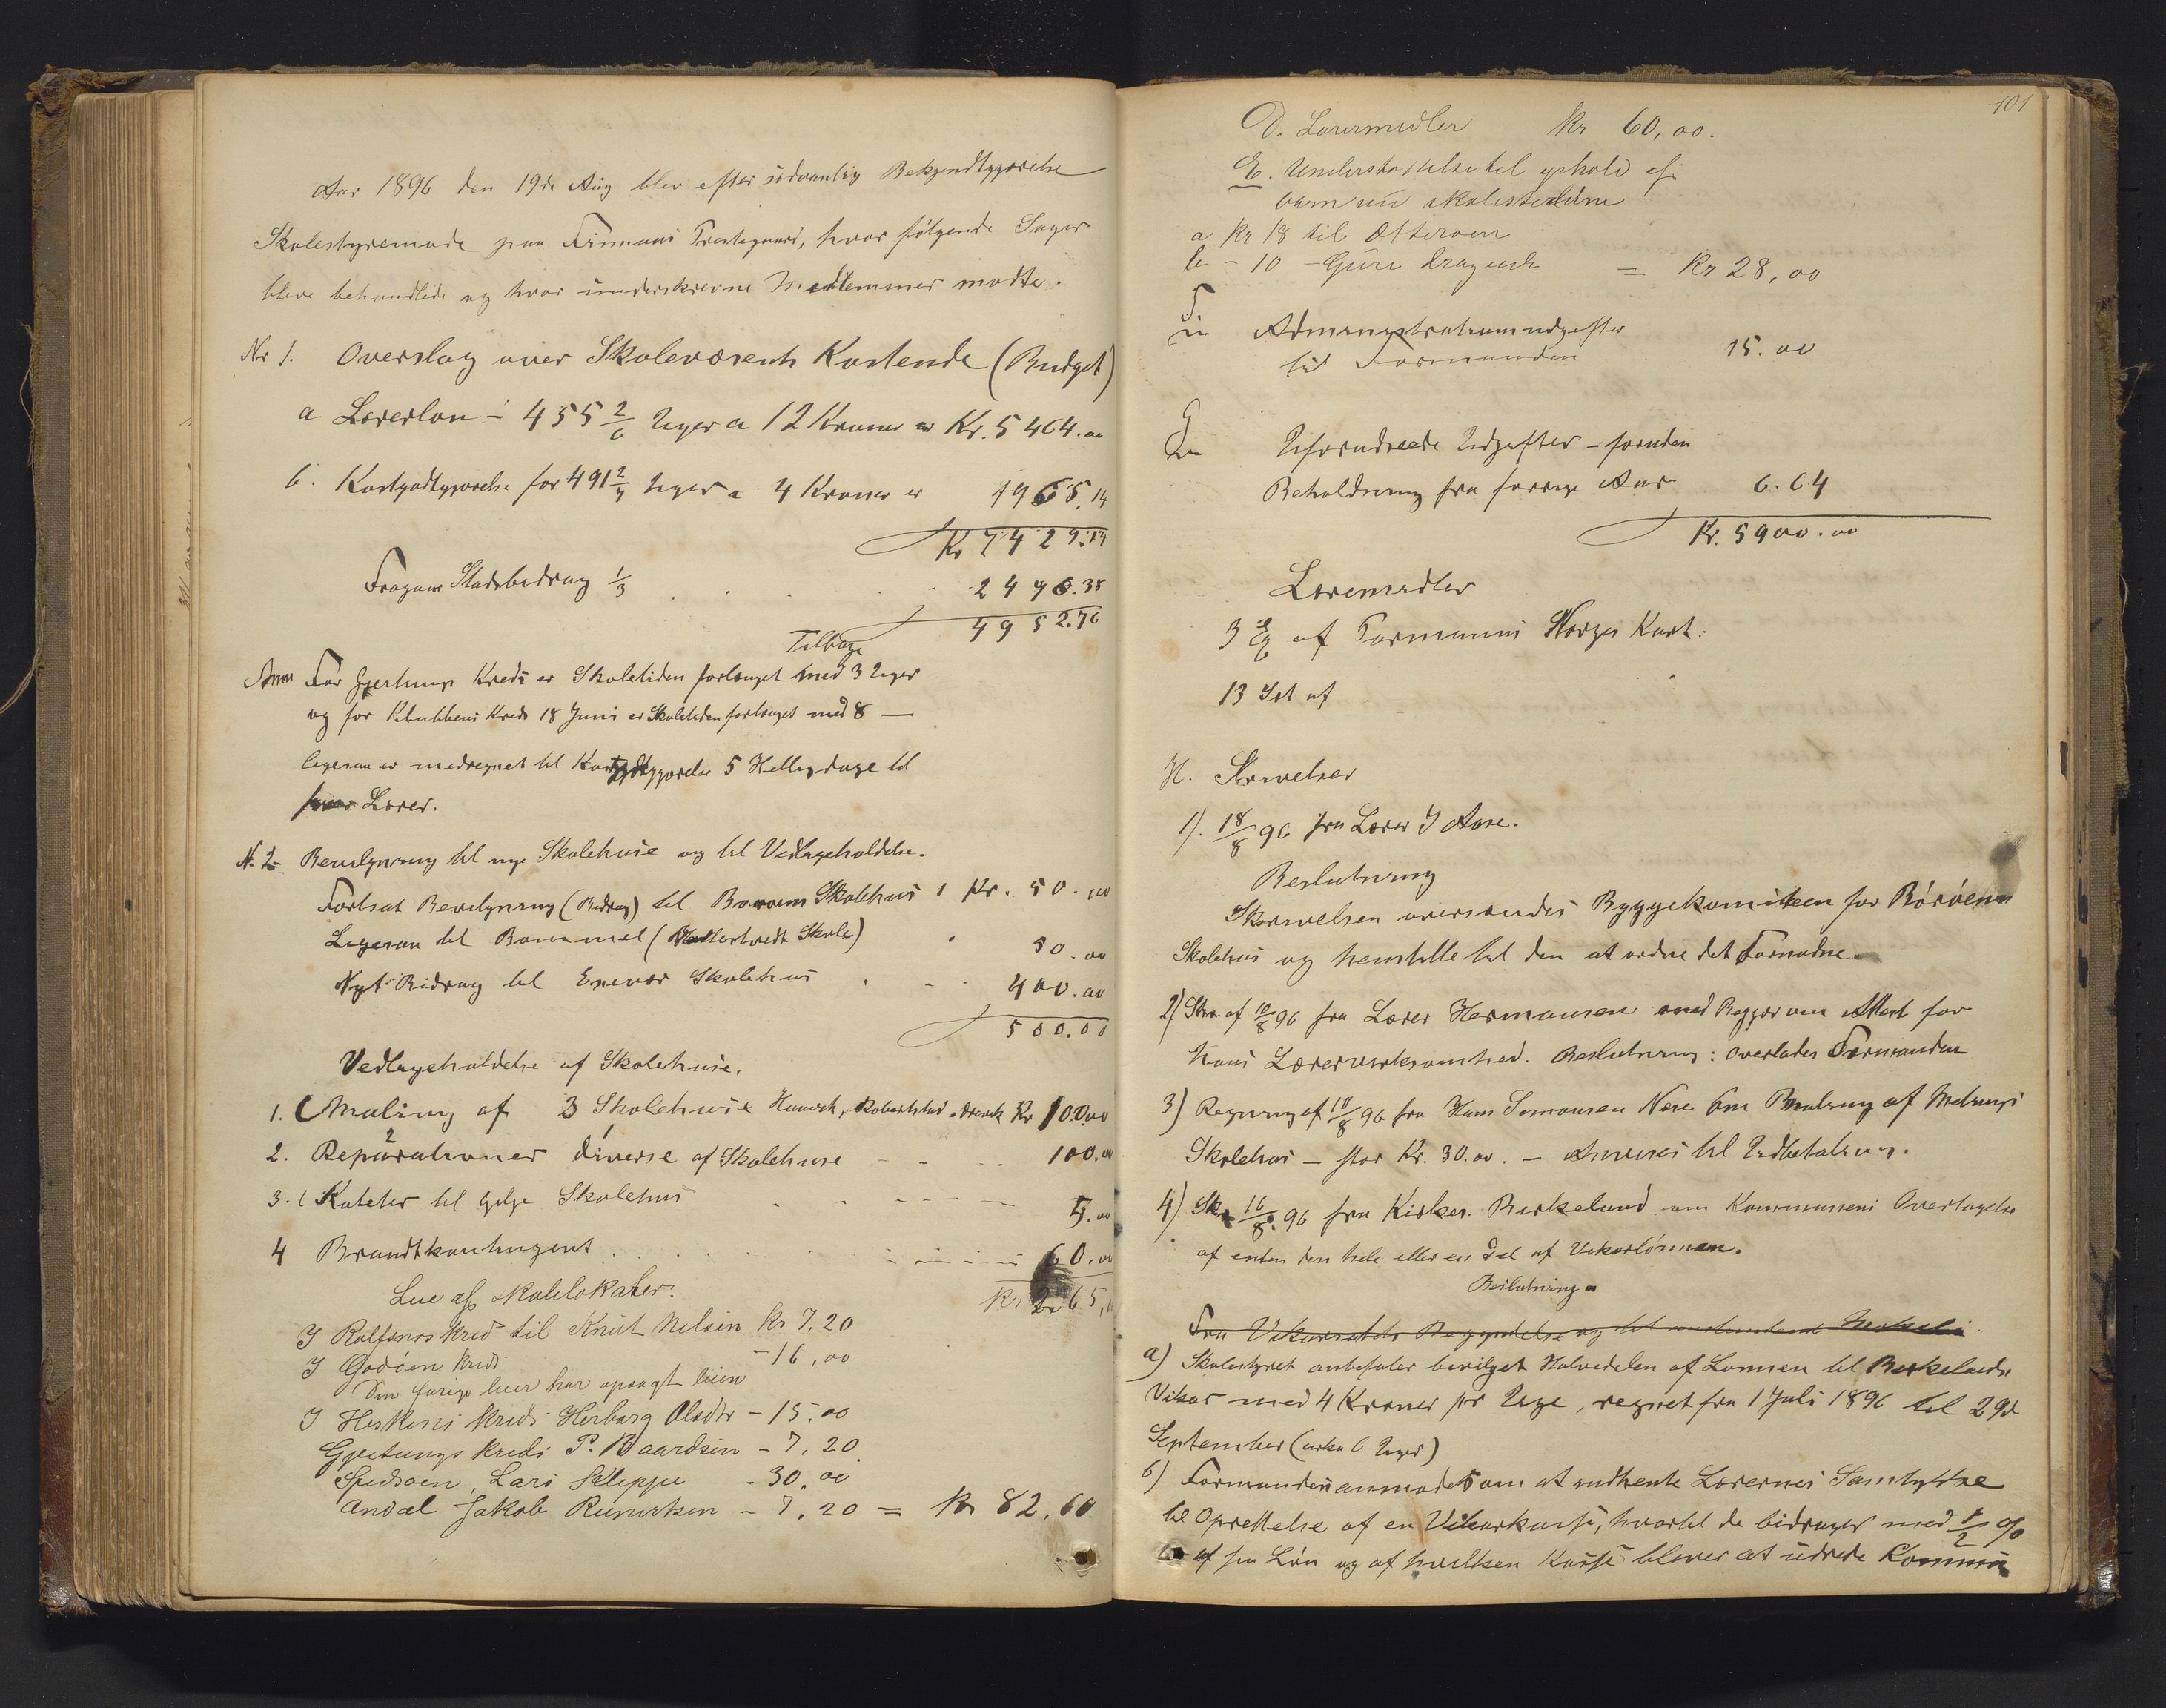 Aar 1896 den 19de Aug blev efter sædvanlig Bekjendtgjørelse
Skolestyremøde paa Finnaas Prestegaard, hvor følgende Sager
bleve behandlede og hvor underskrevne Medlemmer mødte.
Nr 1. Overslag over Skolevæsenets Kostende (Budget)
a Lærerløn - 455 2/6 Uger a 12 Kroner er Kr. 5464.00
b. Kostgodtgjørelse for 491 2/7 Uger a 4 Kroner er 1965.14
Kr 7429.14
Fragaar Stadsbidrag 1/3 2476.38
Tilbage 4952.76
Anm For Gjertungs Kreds er Skoletiden forlænget med 3 Uger
og for Klubbens Kreds 18 Juni er Skoletiden forlænget med 8 —
ligesaa er medregnet til Kostgodtgjørelse 5 Helligdage til
hver Lærer.
N. 2 Bevilgning til nye Skolehuse og til Vedligeholdelse.
Fortsat Bevilgning (Bidrag) til Skolehus 1 Kr. 50.00
Ligesaa til Bømmel ( Skole) 50.00
Nyt Bidrag til Enevær Skolehus 400.00
500.00
Vedligeholdelse af Skolehuse.
1. Maling af 3 Skolehuse Kr 100.00
2. Reparationer diverse af Skolehuse 100.00
3. Kateter til Skolehus 5.00
4 Brandtkontingent 60.00
Leie af skolelokaler. Kr 265,
I Rolfsnes kred til Knut Nelsen kr 7,20
I Godøen kreds - 16,00
Den forige leier har opsagt leien
I Heskens kreds Herborg Olsdtr - 15,00
Gjeitungs kreds P. Baardsen - 7,20
Spidsøen, Lars Kleppe - 30,00
Andal Jakob - 7,20 = Kr 82,60
101
D. Læremidler Kr 60,00.
E. Understøttelse til ophold af
barn ved skolestederne
a Kr 18 til Otterøen
b - 10 - Guri = Kr 28,00
F Administrationsudgifter
til Formanden 15.00
G Uforudseede Udgifter - foruden
Beholdning fra forrige Aar 6.64
Kr. 5900.00
Læremidler
3 Ex af Norges Kart:
13 af
H. Skrivelser
1). 18/8 96 fra Lærer I Aase.
Beslutning
Skrivelsen oversendes Byggekomiteen for Børøens
Skolehus og henstille til den at ordne det Fornødne.
2) Skr. af 10/8 96 fra Lærer Hermansen med Begjær om Attest for
hans Lærervirksomhed. Beslutning: overlades Formanden
3) Regning af 18/8 96 fra Hans Simonsen Næse om Maling af
Skolehus - stor Kr. 30.00. - Anvises til Udbetaling.
4) Skr 16/8 96 fra Kirkes. Birkeland om Kommunens Overtagelse
af enten den hele eller en Del af Vikarlønnen.
Beslutning
Fra Vikariatets Begyndelse og til
a) Skolestyret anbefaler bevilget Halvedelen af Lønnen til Birkelands
Vikar med 4 Kroner pr Uge, regnet fra 1 Juli 1896 til 29d
September (cirka 6 Uger)
b) Formanden anmodes om at indhente Lærernes Samtykke
til Oprettelse af en Vikarkasse, hvortil de bidrager med 1/2 %
af sin Løn og af hvilken Kasse bliver at udrede Kommu